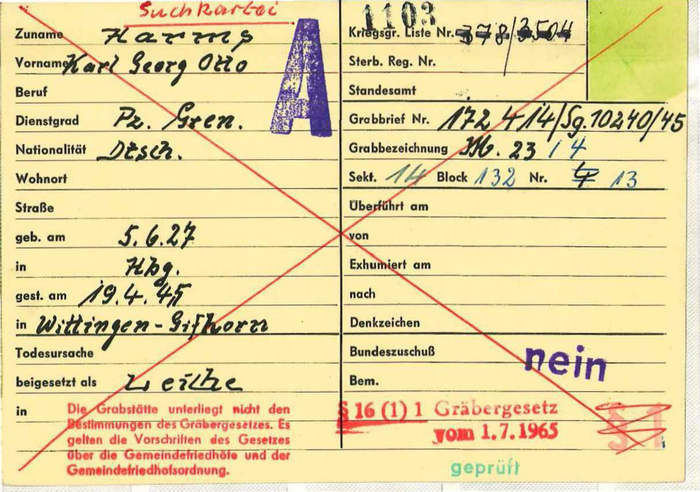 Suchkartei
1103
Zuname Harms
Kriegsgr. Liste Nr. 378/3504
Vorname Karl Georg Otto
Sterb. Reg. Nr.
Beruf
Standesamt
A
Dienstgrad Pz. Gren.
Grabbrief Nr. 172 414/Sg.10240/45
Nationalität Dtsch.
Grabbezeichnung M. 23 / 4
Wohnort
Sekt. 14 Block 132 Nr. 4 13
Straße
Überführt am
geb. am 5.6.27
von
in Hbg.
Exhumiert am
gest. am 19.4.45
nach
in Wittingen-Gifhorn
Denkzeichen
Todesursache
Bundeszuschuß nein
beigesetzt als Leiche
Bem.
in
Die Grabstätte unterliegt nicht den
Bestimmungen des Gräbergesetzes. Es
gelten die Vorschriften des Gesetzes
über die Gemeindefriedhöfe und der
Gemeindefriedhofsordnung.
§ 16 (1) 1 Gräbergesetz
vom 1.7.1965
§ 1
geprüft